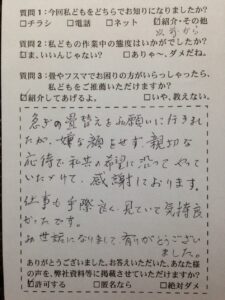 質問1：今回私どもをどちらでお知りになりましたか？
□チラシ □電話 □ネット ☑紹介・その他
以前から
質問2：私どもの作業中の態度はいかがでしたか？
☑ま、いいんじゃない？ □ありゃ～、ダメだね。
質問3：畳やフスマでお困りの方がいらっしゃったら、
私どもをご推薦いただけますか？
☑紹介してあげるよ。 □いや、教えない。
急ぎの畳替えをお願いに行きまし
たが、嫌な顔をせず、親切な
応待で私共の希望に沿ってやって
いただけて、感謝しております。
仕事も手際良く、見ていて気持良
かったです。
お世話になりまして有りがとうござい
ました。
ありがとうございました。お答えいただいた、あなた様
の声を、弊社資料等に掲載させていただけますか？
☑許可する □匿名なら □絶対ダメ